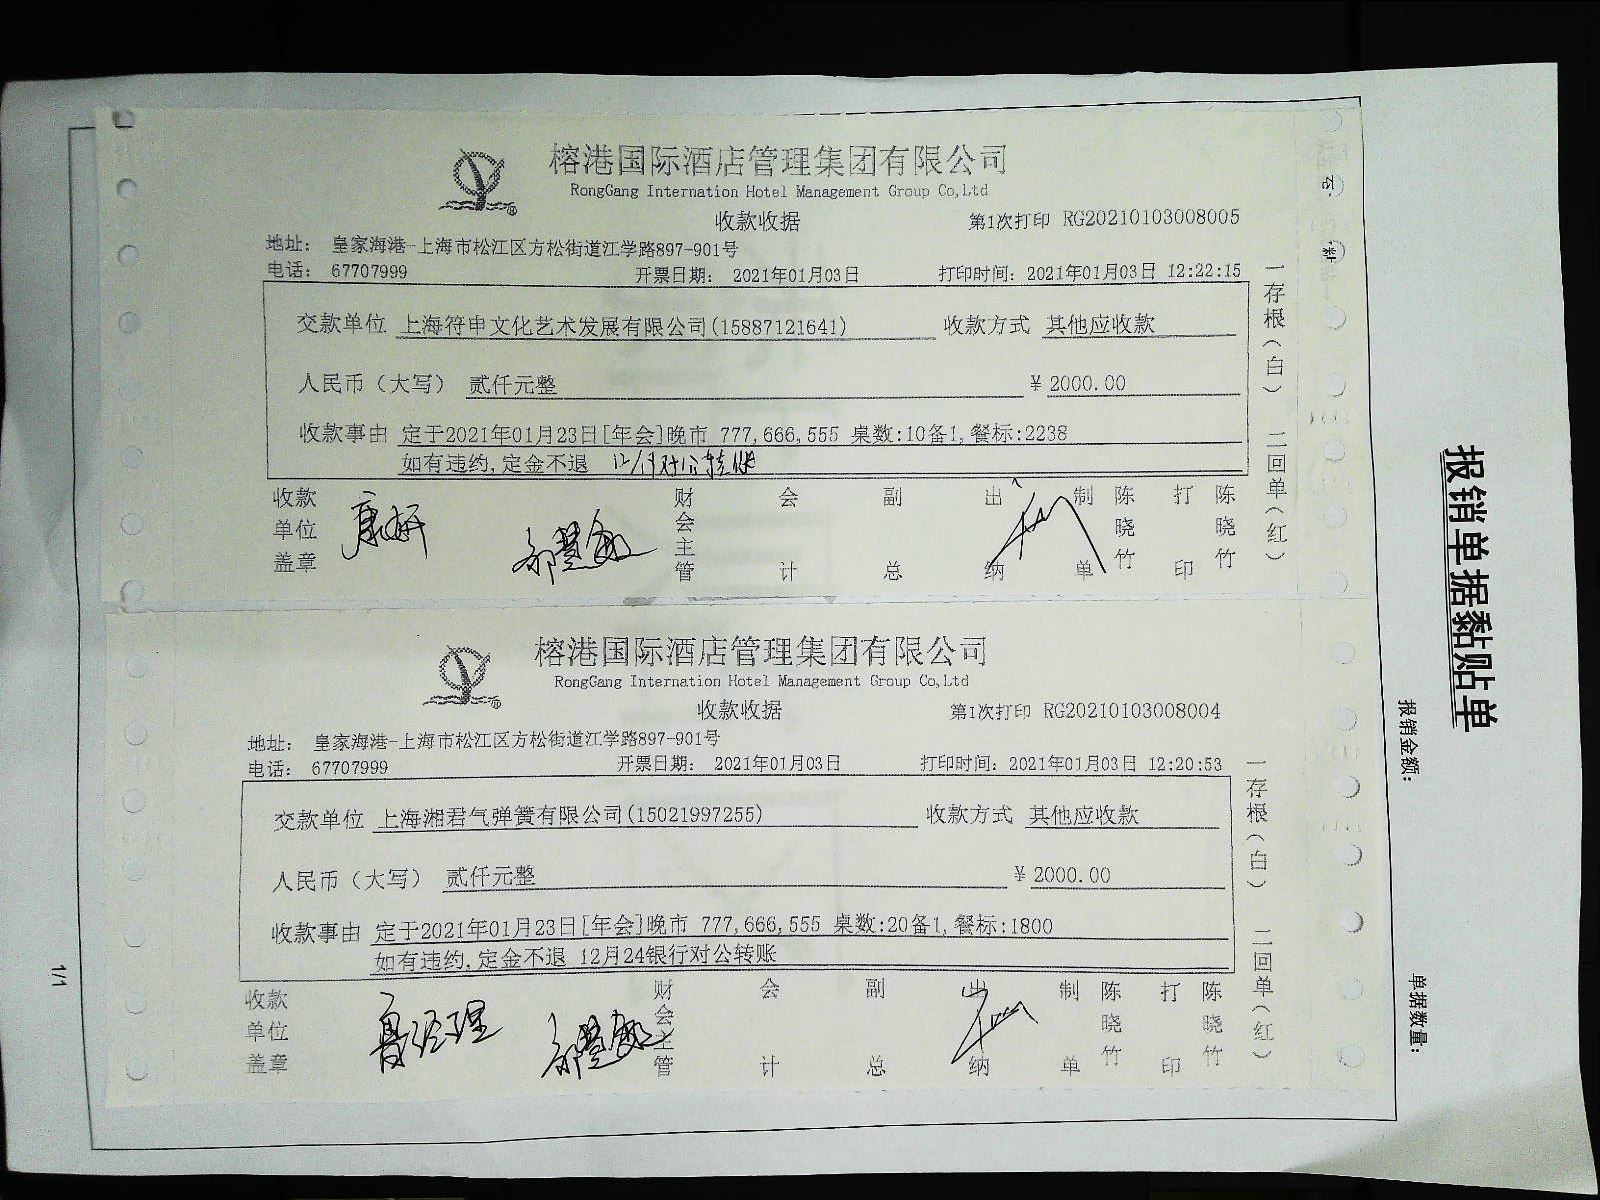 榕港国际酒店管理集团有限公司
RongGang Internation Hotel Management Group Co,Ltd
收款收据
第1次打印 RG20210103008005
地址： 皇家海港-上海市松江区方松街道江学路897-901号
电话： 67707999 开票日期： 2021年01月03日 打印时间：2021年01月03日 12:22:15
交款单位 上海符申文化艺术发展有限公司(15887121641) 收款方式 其他应收款
人民币（大写） 贰仟元整 ¥ 2000.00
收款事由 定于2021年01月23日[年会]晚市 777,666,555 桌数:10备1,餐标:2238
如有违约,定金不退
收款单位盖章 财会主管 会计 副总 出纳 制单 陈晓竹 打印 陈晓竹
一存根（白） 二回单（红）
榕港国际酒店管理集团有限公司
RongGang Internation Hotel Management Group Co,Ltd
收款收据
第1次打印 RG20210103008004
地址： 皇家海港-上海市松江区方松街道江学路897-901号
电话： 67707999 开票日期： 2021年01月03日 打印时间：2021年01月03日 12:20:53
交款单位 上海湘君气弹簧有限公司(15021997255) 收款方式 其他应收款
人民币（大写） 贰仟元整 ¥ 2000.00
收款事由 定于2021年01月23日[年会]晚市 777,666,555 桌数:20备1,餐标:1800
如有违约,定金不退 12月24银行对公转账
收款单位盖章 财会主管 会计 副总 出纳 制单 陈晓竹 打印 陈晓竹
一存根（白） 二回单（红）
报销单据黏贴单
报销金额：
单据数量：
1/1